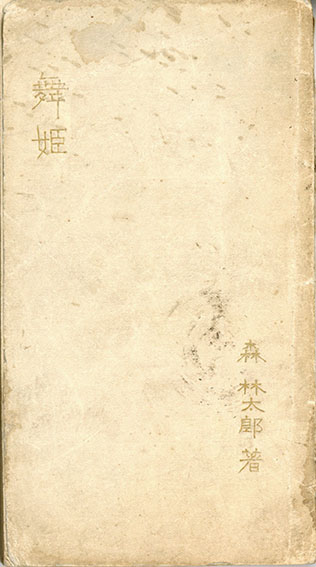 舞姫
森林太郎著